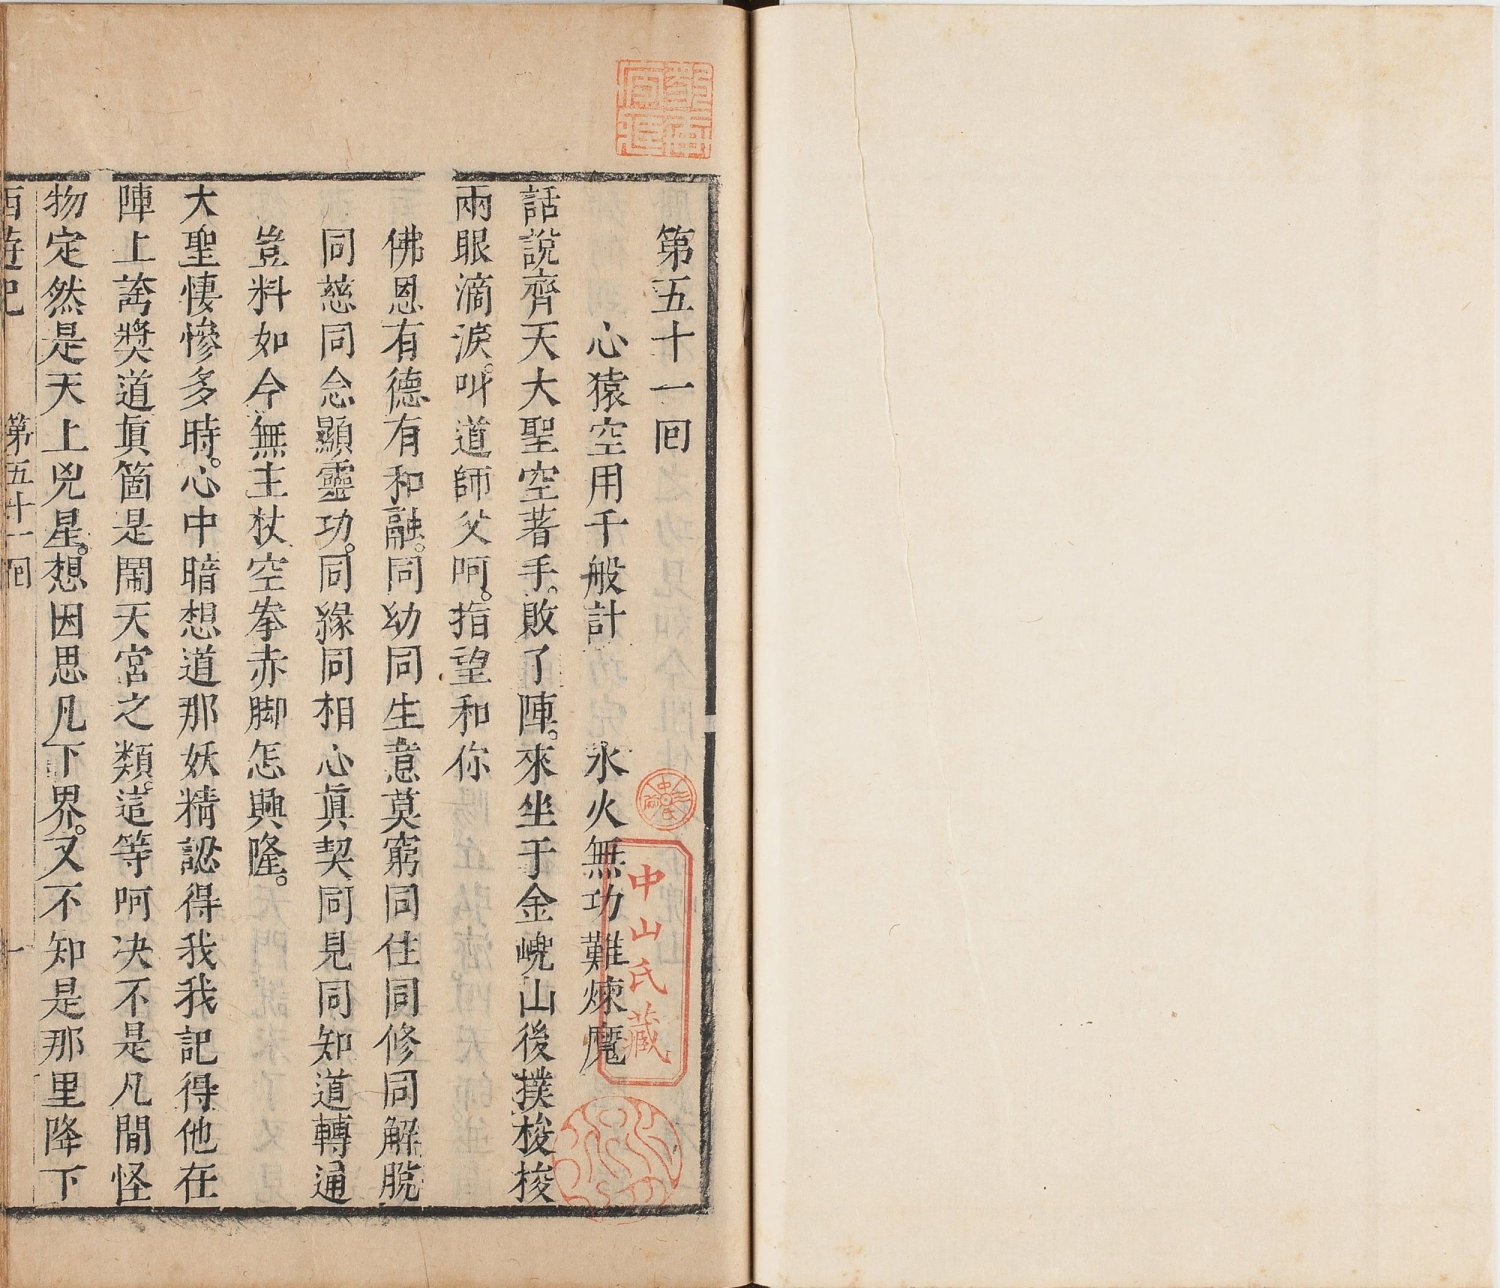 第五十一回
心猿空用千般計　水火無功難煉魔
話說齊天大聖空著手。敗了陣。來坐于金𡾰山後撲梭梭
兩眼滴淚。叫道師父呵。指望和你
佛恩有德有和融。同幼同生意莫窮同住同修同解脫
同慈同念顯靈功。同緣同相心眞契同見同知道轉通
豈料如今無主杖空拳赤脚怎興隆。
大聖悽慘多時。心中暗想道那妖精認得我我記得他在
陣上誇獎道眞箇是鬧天宮之類。這等呵决不是凡間怪
物定然是天上兇星。想因思凡下界。又不知是那里降下
西遊記　第五十一回　一
中山氏藏